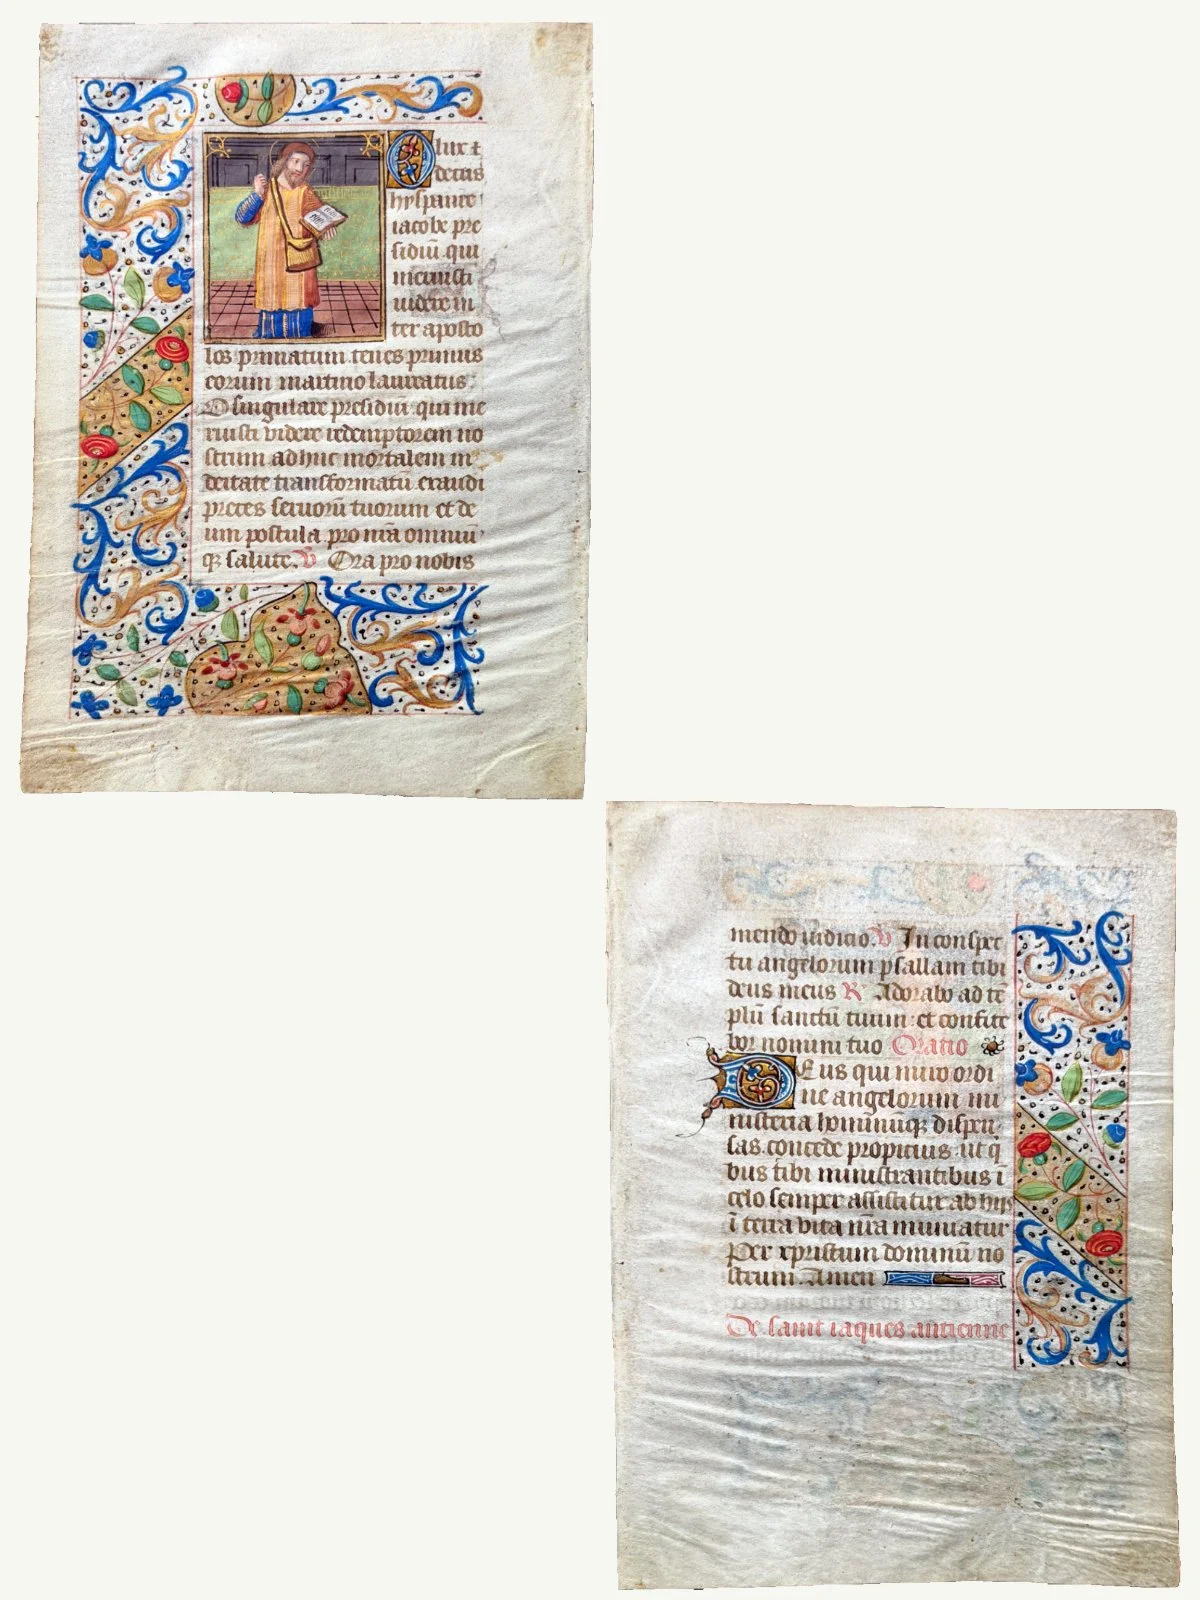 O lux &
decus
hyspanie
iacobe pre
sidiū qui
meruisti
videre in
ter aposto
los primatum tenes primus
eorum martirio laureatus
O singulare presidiū qui me
ruisti videre redemptorem no
strum adhuc mortalem in
deitate transformatū exaudi
preces seruorū tuorum et de
um postula pro nr̄a omniū
qꝫ salute. ℣ Ora pro nobis
mendo iudicio. ℣ In conspec
tu angelorum psallam tibi
deus meus ℟ Adorabo ad tē
plū sanctū tuum et confite
bor nomini tuo Oratio
Deus qui miro ordi
ne angelorum mi
nisteria hominūqꝫ dispen
sas. concede propicius ut q̄
bus tibi ministrantibus ī
celo semper assistitur ab hijs
ī terra vita nr̄a muniatur
Per xpristum dominū no
strum. Amen
De saint iaques antienne